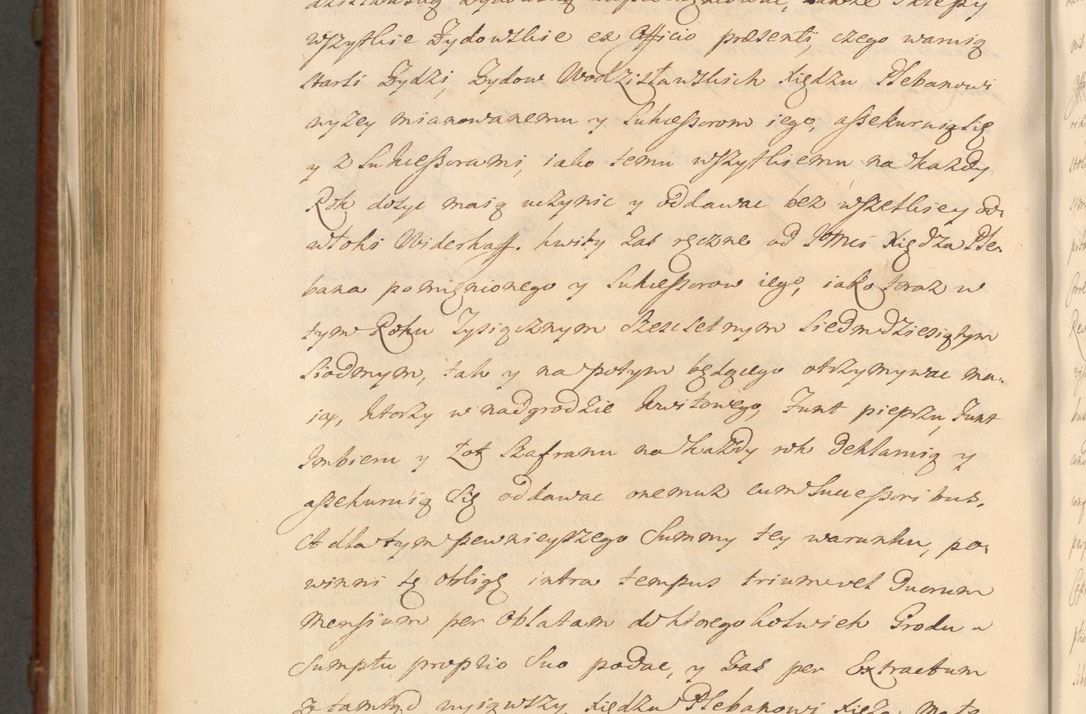 wszytkie Zydowskie ex Officio præsenti, czego waruią
starsi Zydzi, Zydow Wodzisławskich Xiędzu Plebanowi
wyzey mianowanemu y Sukcessorom iego, assekuruią się
y z Sukcessorami, iako temu wszytkiemu na kazdy
Rok dosyc maią uczynic y oddawac bez wszelkiey od-
włoki Widerkaff. kwity zas ręczne od JMci Xiędza Ple-
bana pomienionego y Sukcessorow iego, iako teraz w
tym Roku Tysiącznym Szescsetnym Siedmdziesiątym
Siodmym, tak y na potym będącego otrzymywac ma-
ią, ktorzy w nadgrodzie kwitowego, Funt pieprzu, Funt
Imbieru y Łot Szafranu na kazdy rok deklaruią y
assekuruią się oddawac onemuz cum Successoribus.
A dla tym pewnieyszego Summy tey warunku, po-
winni tę obligę intra tempus trium vel duorum
Mensium per Oblatam do ktoregokolwiek Grodu
Sumptu proprio suo podac, y zas per Extractum
z tamtąd wyiąwszy Xiędzu Plebanowi